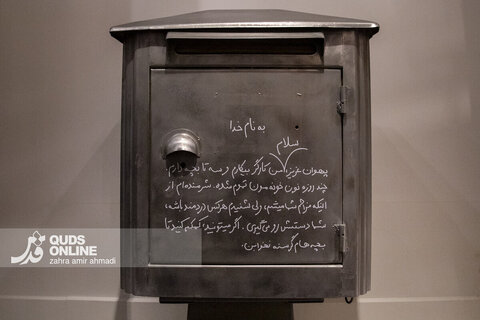 به نام خدا
سلام
پهلوان عزیز! من کارگر بیکارم و سه تا بچه دارم.
چند روزه نون خونه‌مون تموم شده. شرمنده‌ام از
اینکه مزاحم شما میشم، ولی شنیدم هرکس دردمند باشه،
شما دستش رو می‌گیری. اگر میتونید، کمک کنید تا
بچه‌هام گرسنه نخوابن.
قدس
QUDS
ONLINE
zahra amir ahmadi